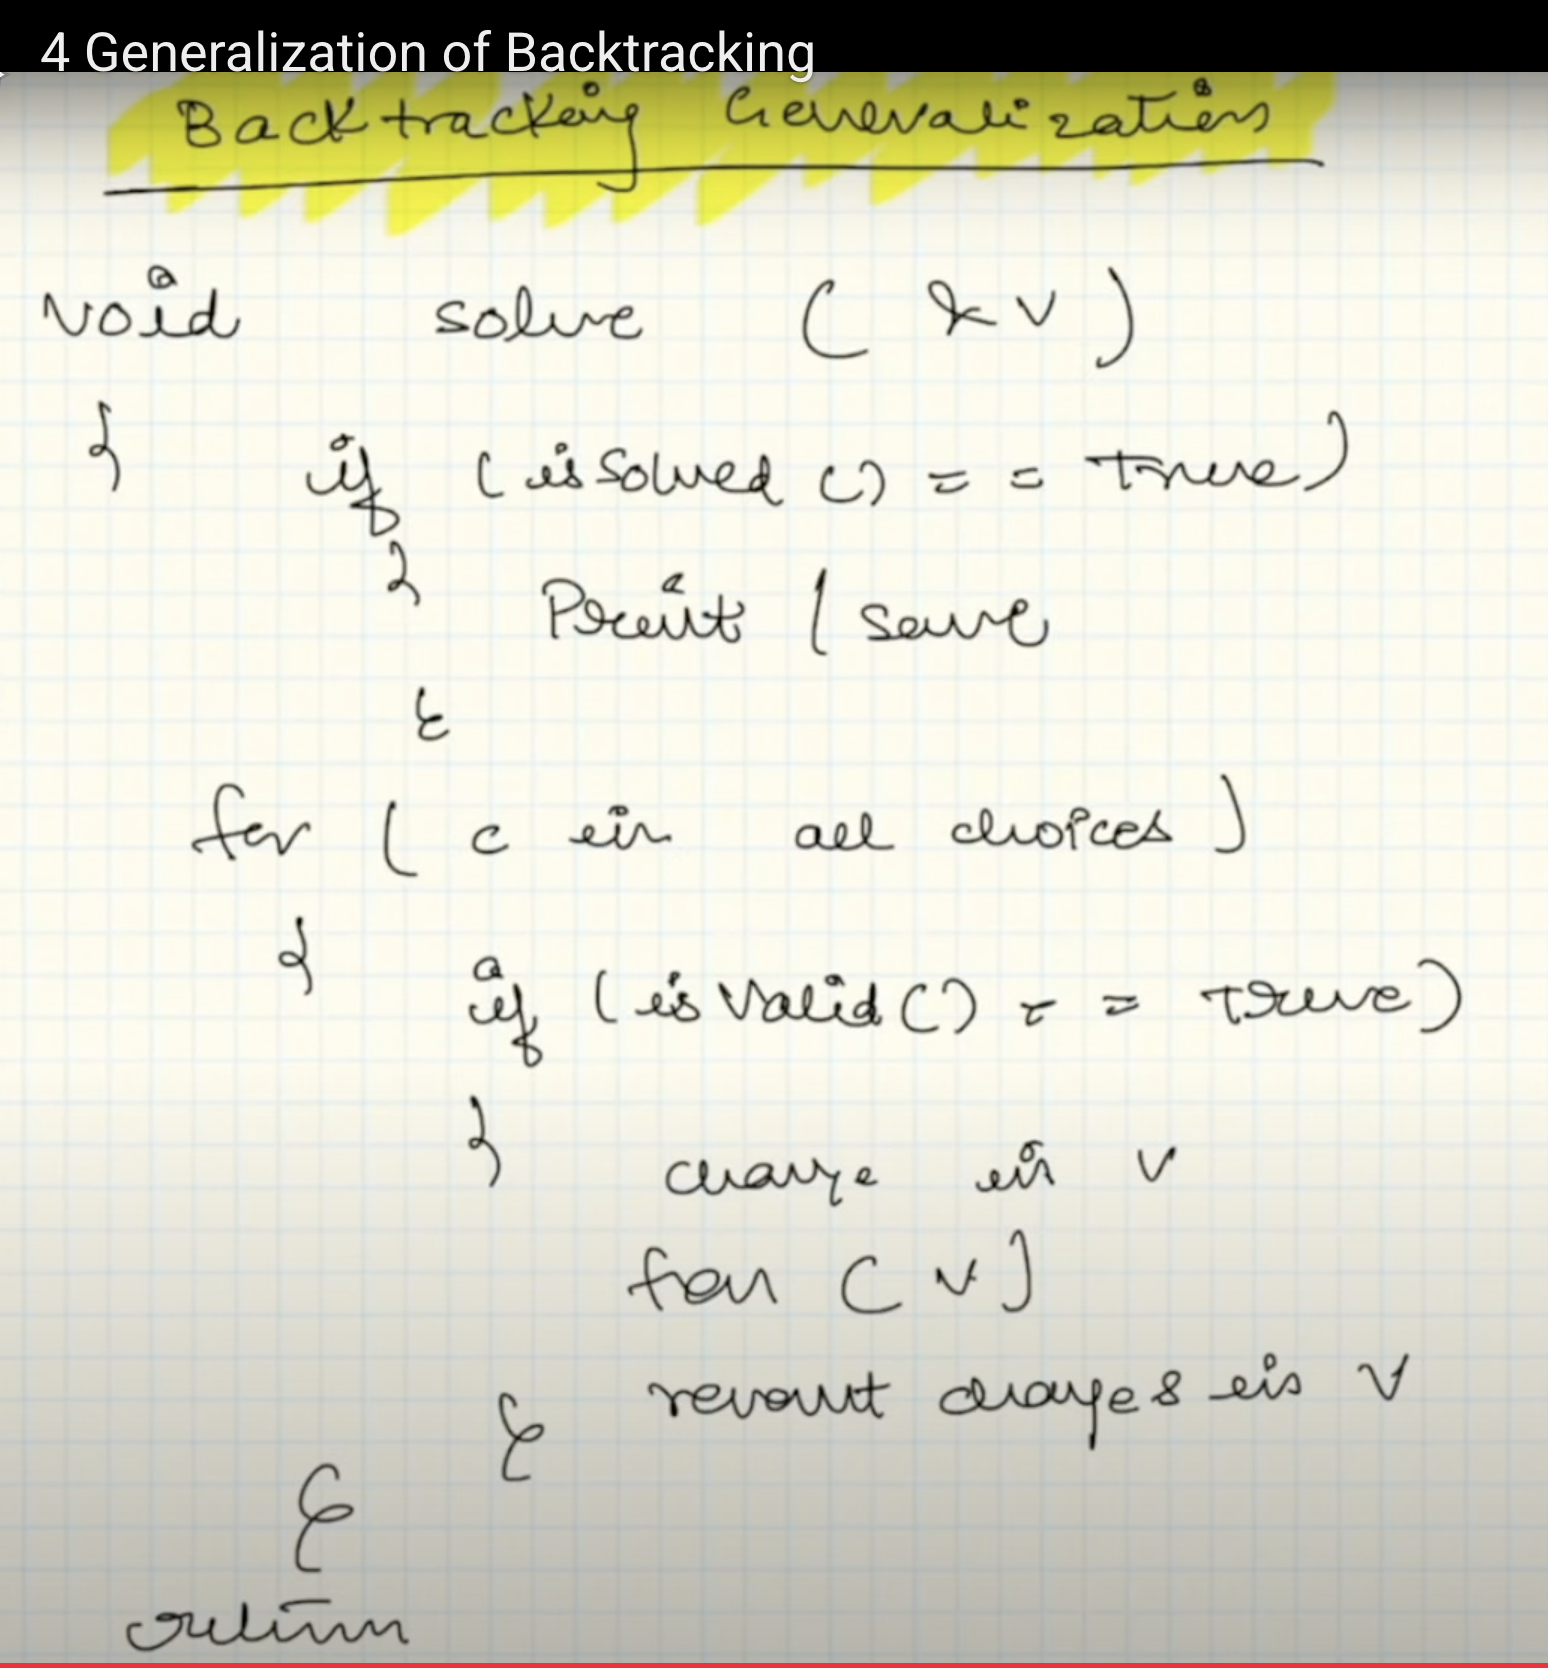 4 Generalization of Backtracking
Backtracking Generalization
void solve ( & v )
{ if ( isSolved () = = True )
{ Print / save
}
for ( c in all choices )
{ if ( isValid () = = true )
{ change in v
fun ( v )
} revert changes in v
}
return